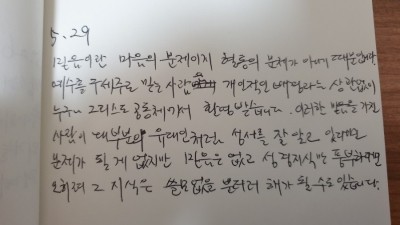 5. 29
믿음이란 마음의 문제이지 혈통의 문제가 아니기 때문입니다
예수를 구세주로 믿는 사람은 개인적인 배경과는 상관없이
누구나 그리스도 공동체에서 환영받습니다. 이러한 믿음을 가진
사람이 대부분의 유대인처럼 성서를 잘 알고 있다면
문제가 될 게 없지만 믿음은 없고 성경지식만 풍부하면
오히려 그 지식은 쓸모없을 뿐더러 해가 될 수도 있습니다.